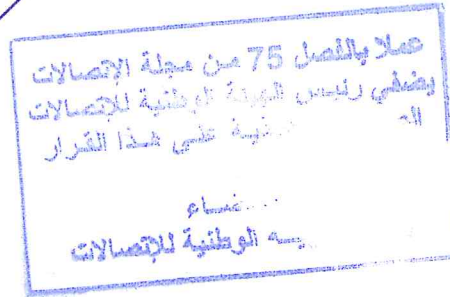 عملا بالفصل 75 من مجلة الإتصالات
يمضي رئيس الهيئة الوطنية للإتصالات
على هذا القرار
الوطنية للإتصالات